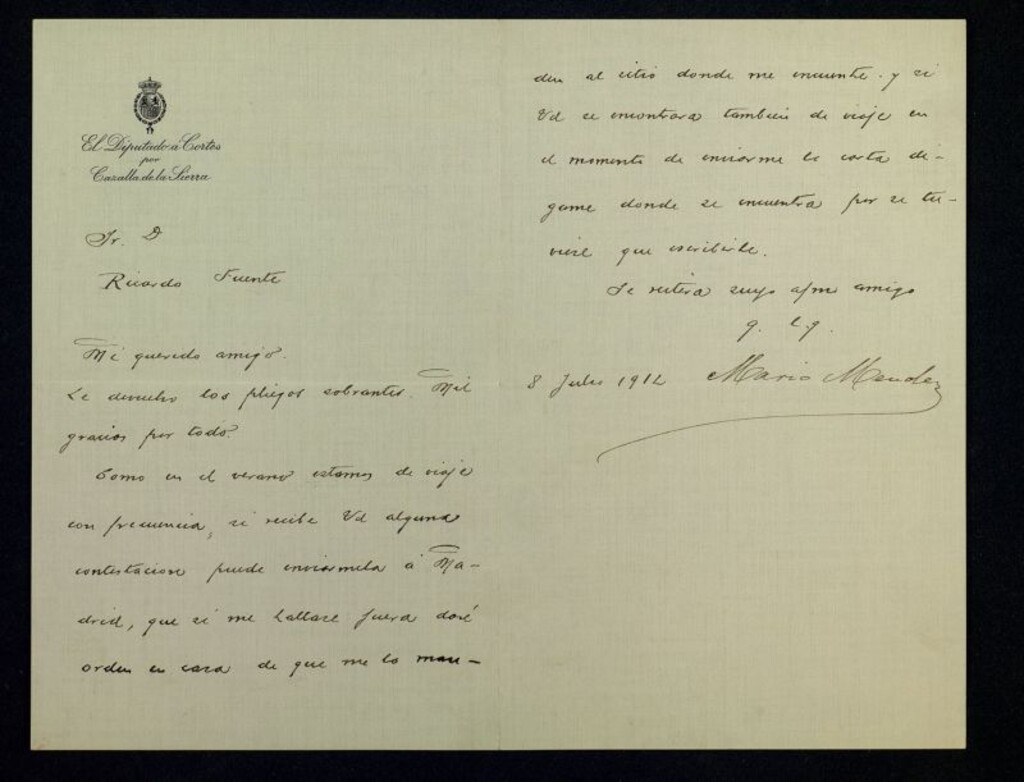 El Diputado à Cortes
por
Cazalla de la Sierra
Sr. D
Ricardo Fuente
Mi querido amigo.
Le devuelvo los pliegos sobrantes. Mil
gracias por todo.
Como en el verano estamos de viaje
con frecuencia, si recibe Vd alguna
contestacion puede enviarmela á Ma-
drid, que si me hallase fuera daré
orden en casa de que me la man-
den al sitio donde me encuentre. y si
Vd se encontrara tambien de viaje en
el momento de enviarme la carta di-
game donde se encuentra por si tu-
viese que escribirle.
Se reitera suyo afmo amigo
q. l. q.
8 Julio 1912 Mario Mendez